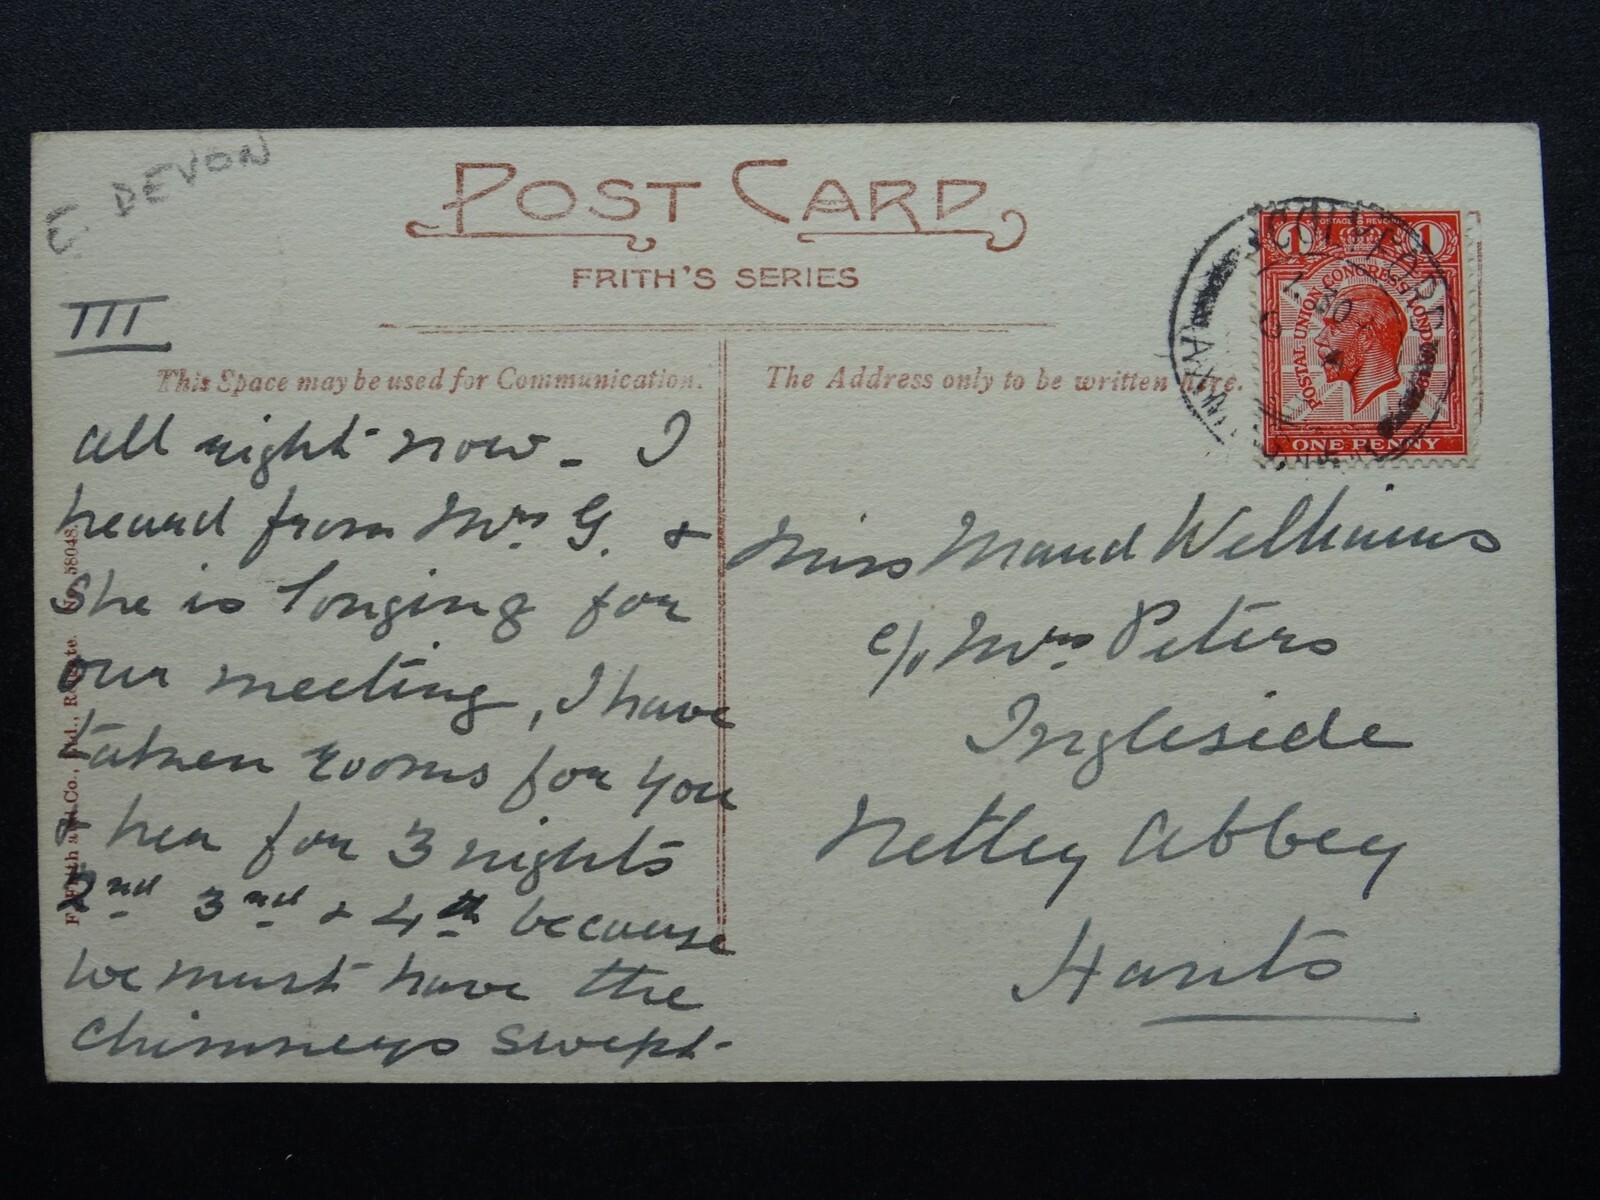 E. DEVON
POST CARD
FRITH'S SERIES
III
This Space may be used for Communication.
The Address only to be written here.
all right now - I
heard from Mrs G. &
She is longing for
our meeting, I have
taken rooms for you
& her for 3 nights
2nd 3rd & 4th because
we must have the
Chimneys swept-
F. Frith and Co., Ltd., Reigate. No. 58048.
Miss Maud Williams
c/o Mrs Peters
Ingleside
Netley Abbey
Hants
1 POSTAGE & REVENUE 1
POSTAL UNION CONGRESS LONDON 1929
ONE PENNY